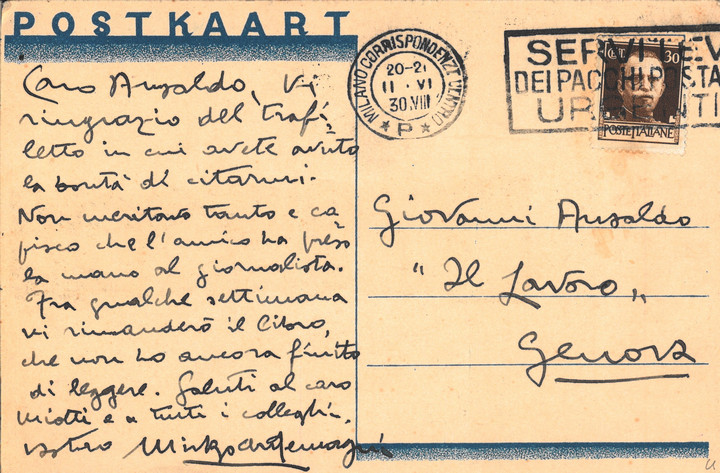 POSTKAART
Caro Ansaldo, vi
ringrazio del trafi-
letto in cui avete avuto
la bontà di citarmi.
Non meritavo tanto e ca
pisco che l'amico ha preso
la mano al giornalista.
Fra qualche settimana
vi rimanderò il libro,
che non ho ancora finito
di leggere. Saluti al caro
Miotti e a tutti i colleghi.
vostro
MILANO CORRISPONDENZE CENTRO
20-21
11·VI
30.VIII
* P *
SERVI EV
DEI PACCHI POSTA
URGENTI
CENT. 30
POSTE ITALIANE
Giovanni Ansaldo
"Il Lavoro"
Genova